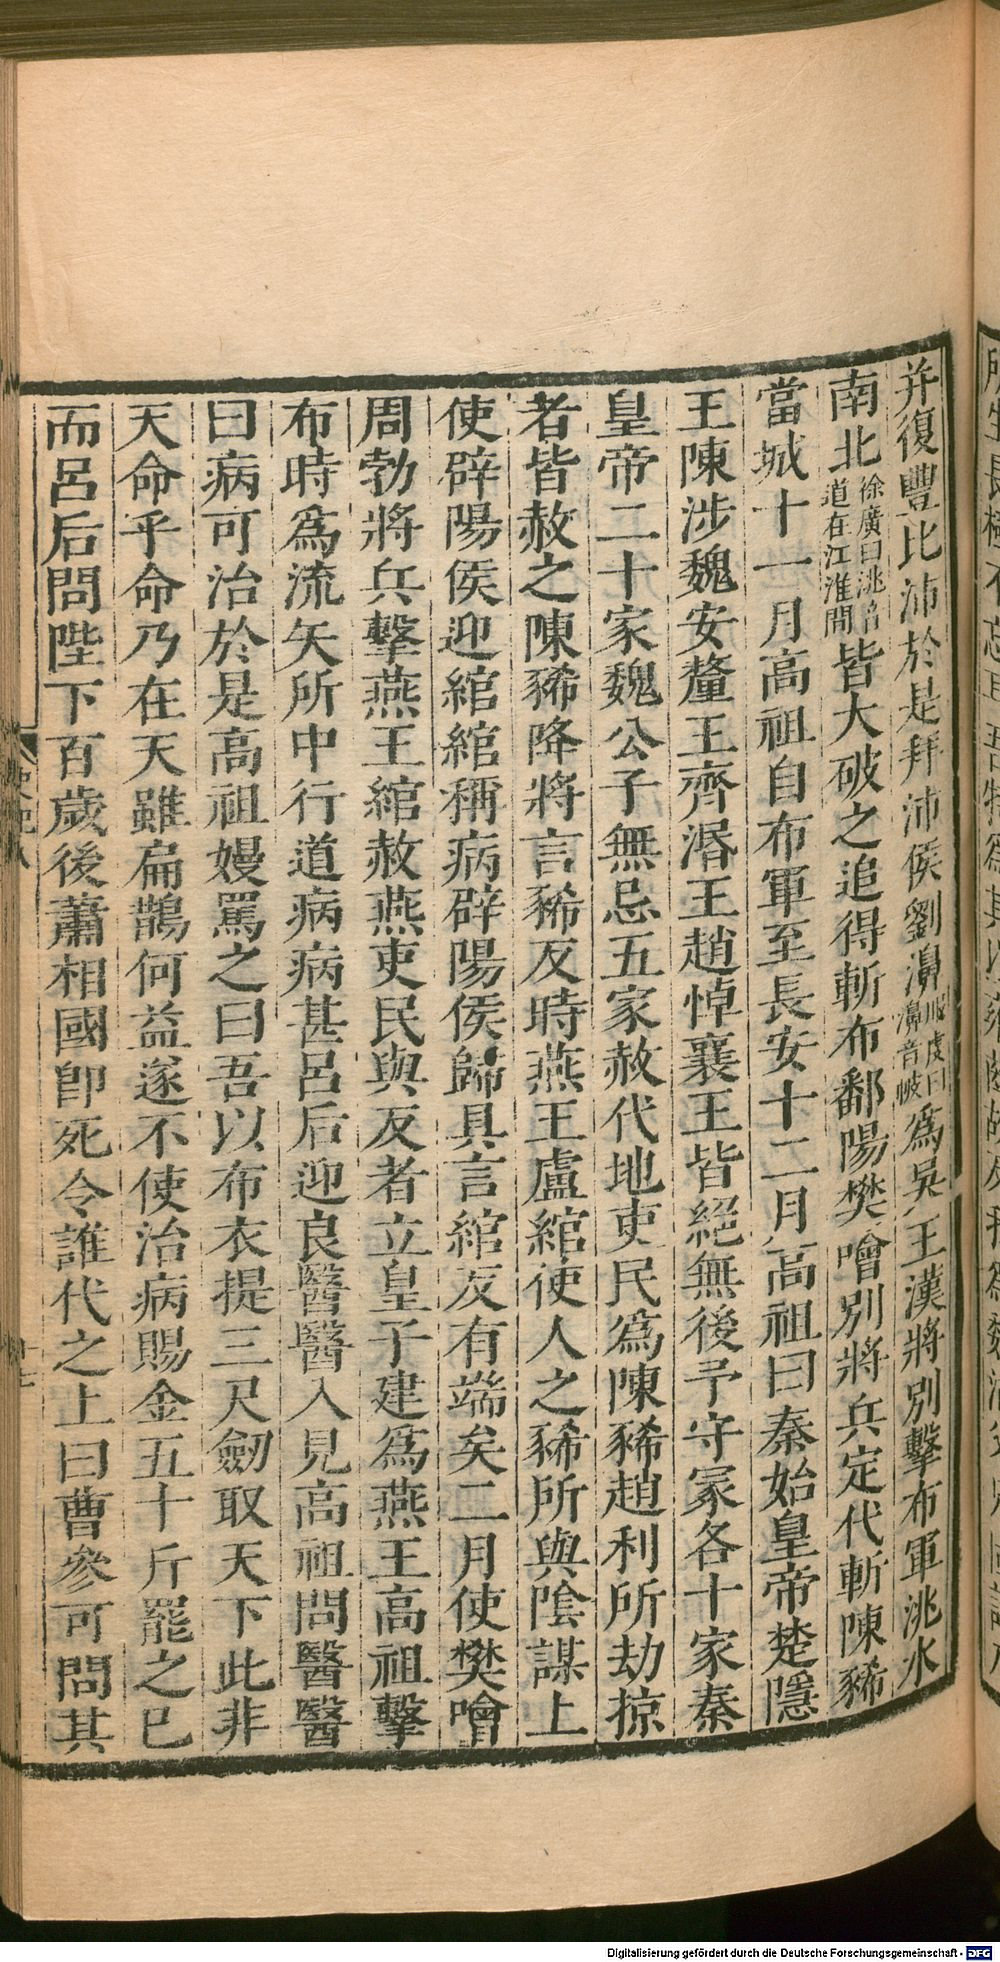 并復豐比沛於是拜沛侯劉濞服虔曰濞音帔爲吳王漢將別擊布軍洮水
南北徐廣曰洮音道在江淮間皆大破之追得斬布鄱陽樊噲別將兵定代斬陳豨
當城十一月高祖自布軍至長安十二月高祖曰秦始皇帝楚隱
王陳涉魏安釐王齊湣王趙悼襄王皆絕無後予守冢各十家秦
皇帝二十家魏公子無忌五家赦代地吏民爲陳豨趙利所劫掠
者皆赦之陳豨降將言豨反時燕王盧綰使人之豨所與陰謀上
使辟陽侯迎綰綰稱病辟陽侯歸具言綰反有端矣二月使樊噲
周勃將兵擊燕王綰赦燕吏民與反者立皇子建爲燕王高祖擊
布時爲流矢所中行道病病甚呂后迎良醫醫入見高祖問醫醫
曰病可治於是高祖嫚罵之曰吾以布衣提三尺劒取天下此非
天命乎命乃在天雖扁鵲何益遂不使治病賜金五十斤罷之已
而呂后問陛下百歲後蕭相國卽死令誰代之上曰曹參可問其
Digitalisierung gefördert durch die Deutsche Forschungsgemeinschaft - DFG